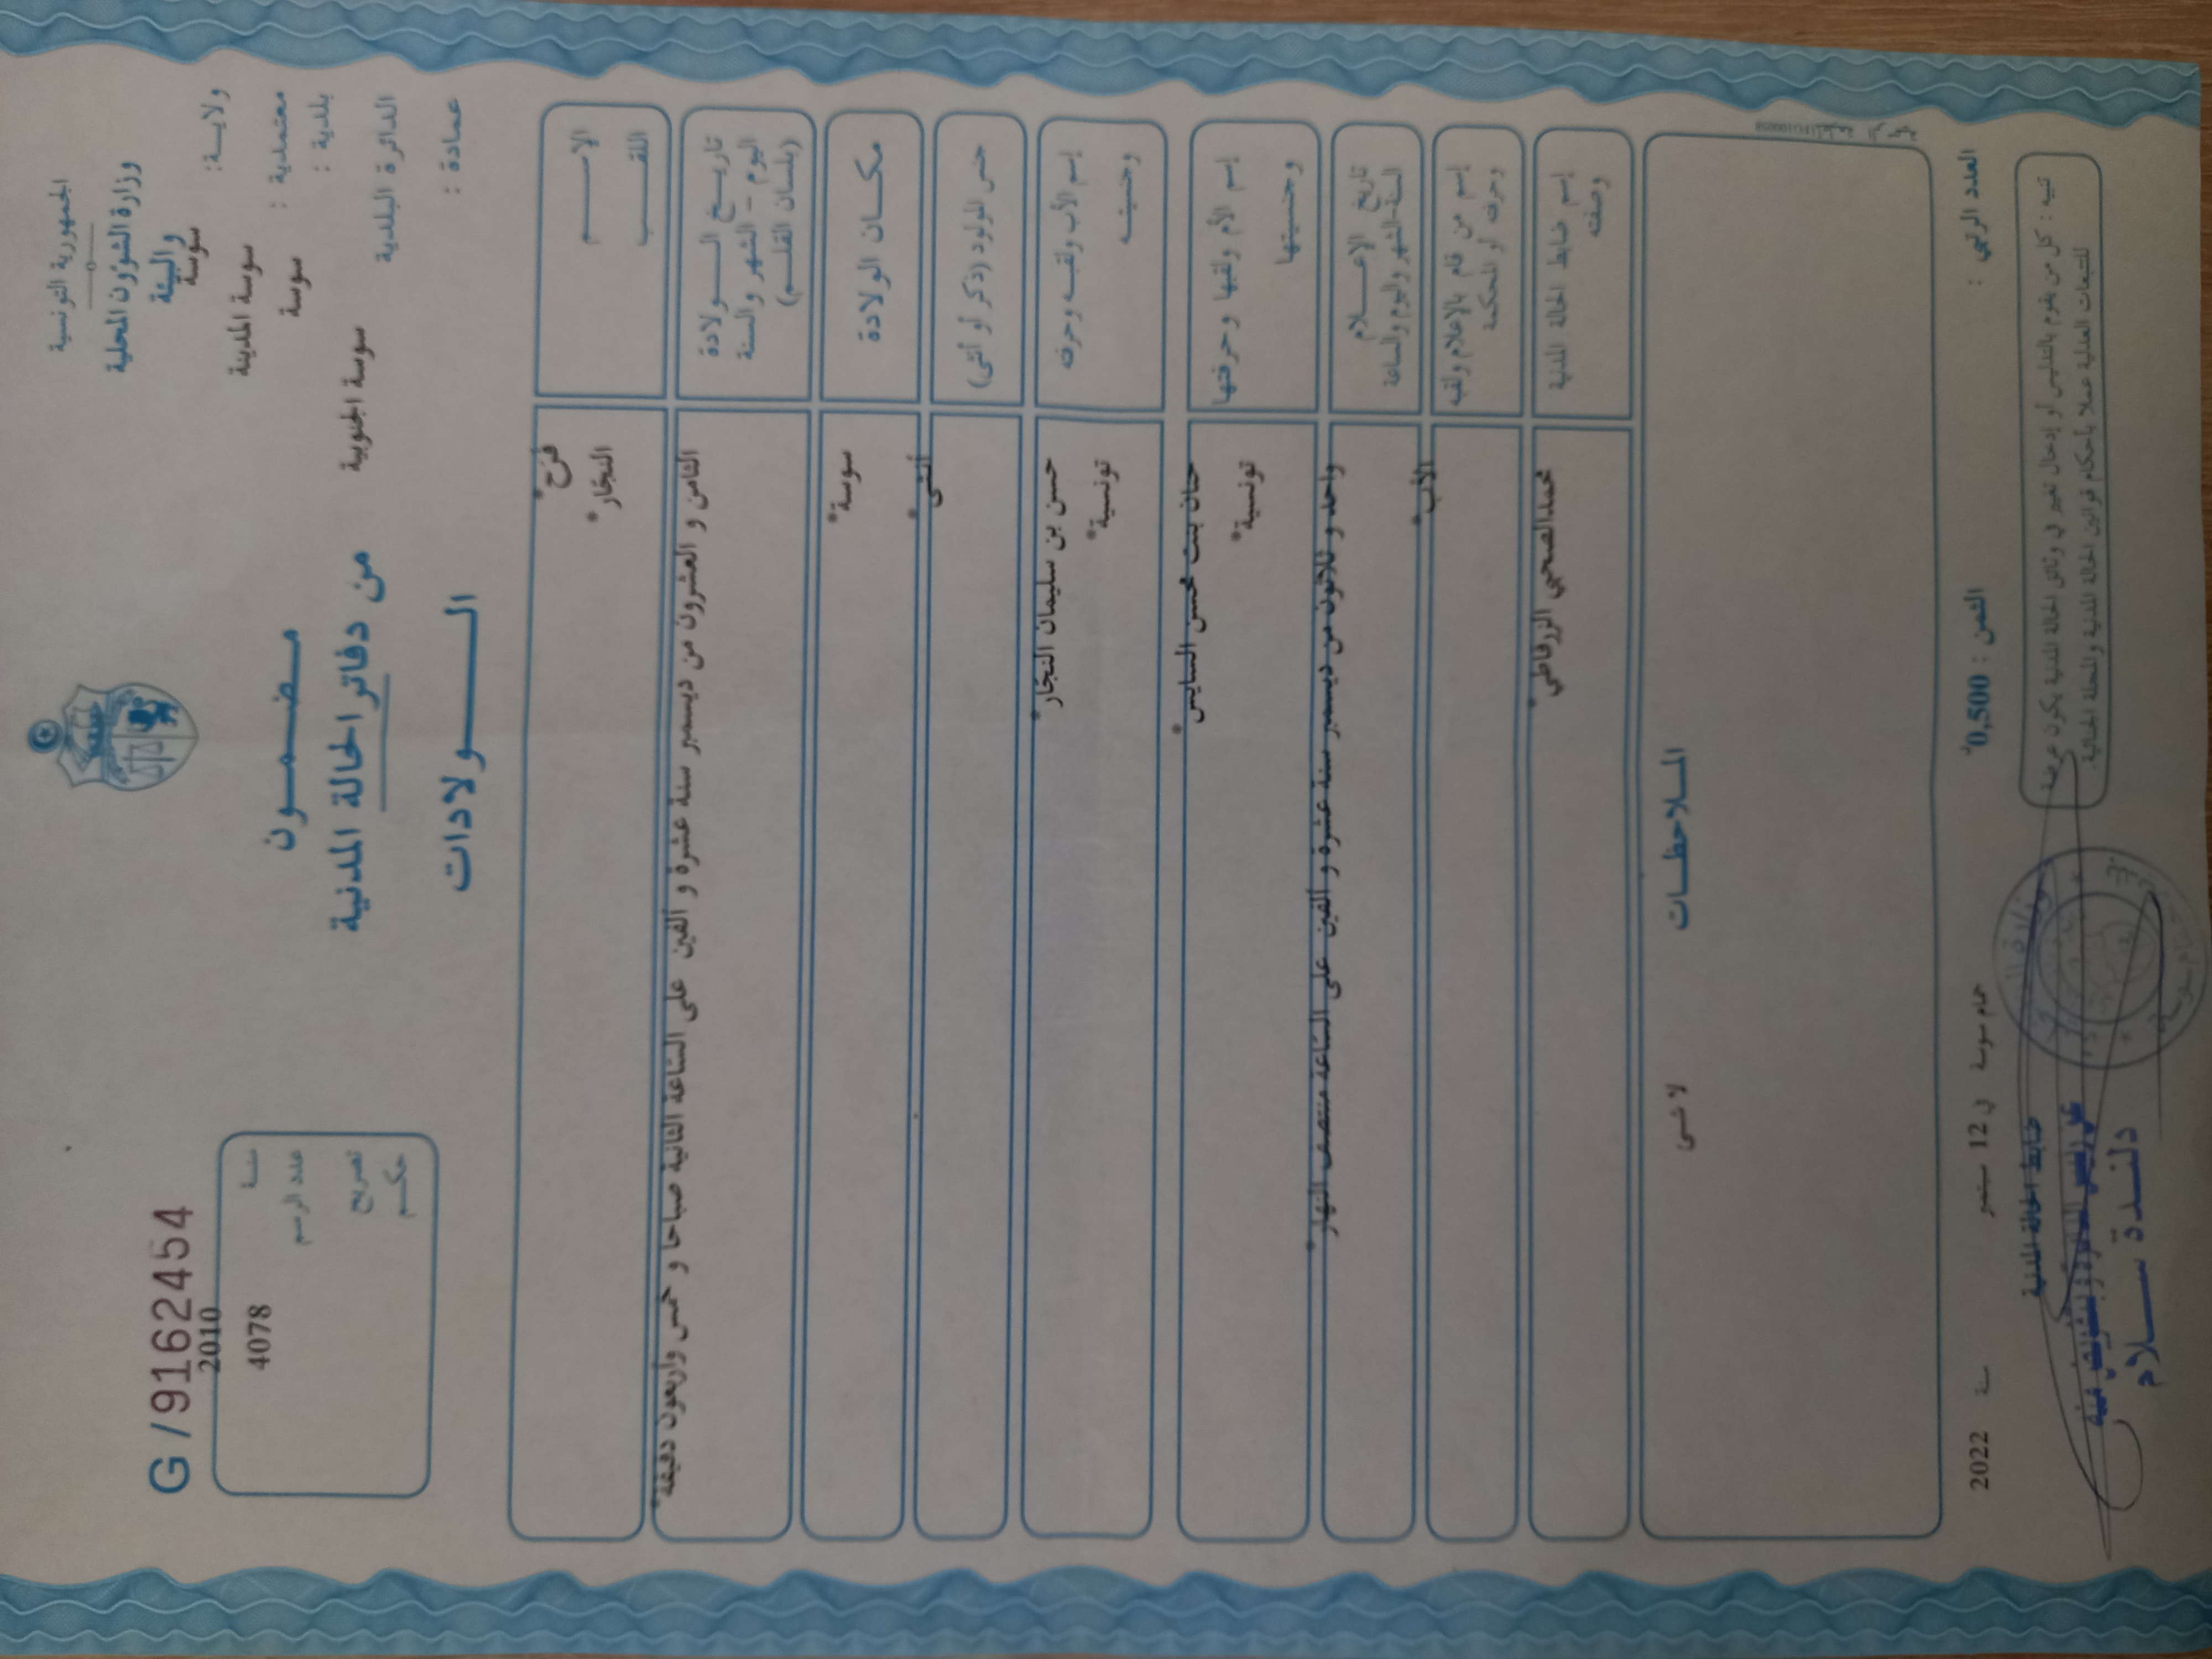 الجمهورية التونسية
وزارة الشؤون المحلية
والبيئة
ولايـــة :
سوسة
معتمدية :
سوسة المدينة
بلدية :
سوسة
الدائرة البلدية
سوسة الجنوبية
عمادة :
مـضـمــون
من دفاتر الحالة المدنية
الــــولادات
G / 9162454
سنـة
2010
عدد الرسم
4078
تصريح
حكـم
الإســــم
فرح*
اللقــــب
النجّار*
تاريــخ الـــولادة
اليوم – الشهر والسنة
(بلسان القلـــم)
الثامن و العشرون من ديسمبر سنة عشرة و ألفين على السّاعة الثانية صباحا و خمس وأربعون دقيقة*
مكــان الولادة
سوسة*
جنس المولود (ذكر أو أنثى)
أنثى*
إسم الأب ولقبـه وحرفته
حسن بن سليمان النجّار*
وجنسيتـــه
تونسية*
إسم الأم ولقبها وحرفتها
حنان بنت محسن السايس*
وجنسيتها
تونسية*
تاريخ الإعـــلام
السنة-الشهر واليوم والساعة
واحد و ثلاثون من ديسمبر سنة عشرة و ألفين على السّاعة منتصف النهار*
إسم من قام بالإعلام ولقبه
وحرفته أو المحكمة
الأب*
إسم ضابط الحالة المدنية
وصفته
محمدالصحبي الزرقاطي*
المـلاحظــات
لا شئ
العدد الرتبي :
الثمن : 0,500د
حمام سوسة في 12 سبتمبر سنة 2022
تنبيه : كل من يقوم بالتدليس أو إدخال تغيير في وثائق الحالة المدنية يكون عرضة
للتتبعات العدلية عملا بأحكام قوانين الحالة المدنية والمجلة الجنائية.
ضابط الحالة المدنية
دلنـدة ســلام